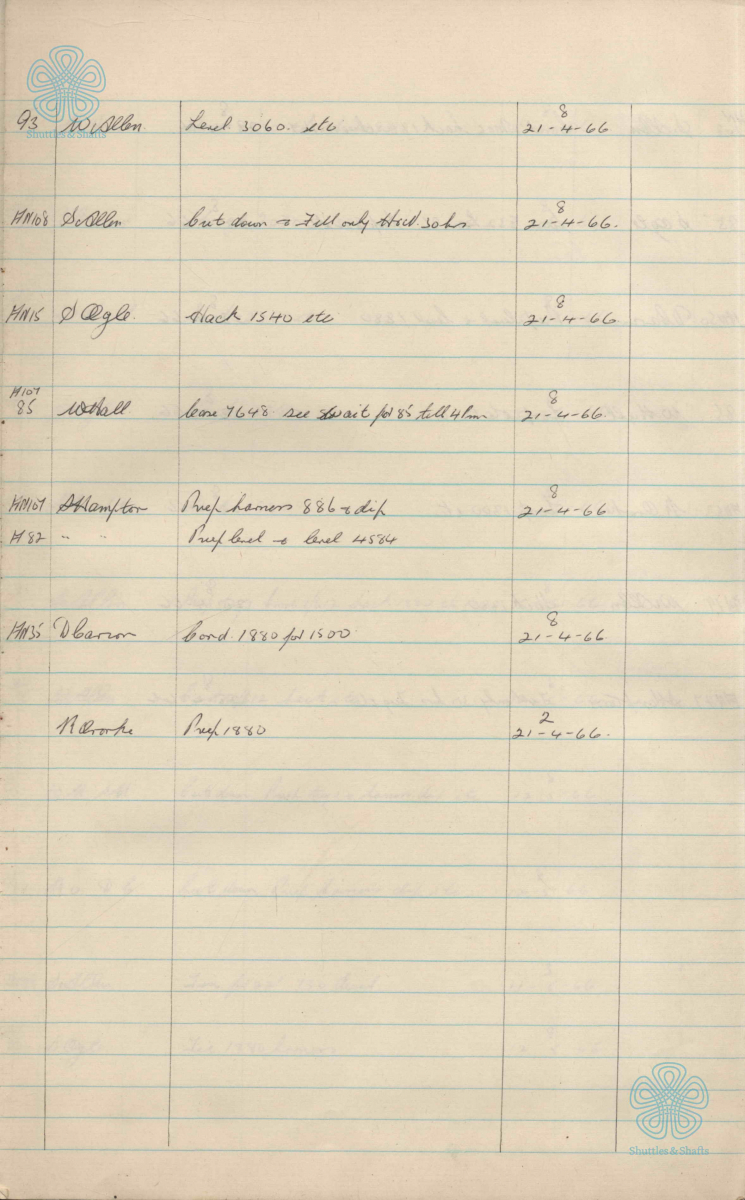 Shuttles & Shafts
93 W. Allen. Level 3060. etc 8 21-4-66
HN108 S. Allen Cut down & Fell only 8 21-4-66.
HN15 S Ogle. Hack 1540 etc 8 21-4-66
H107
85 W Hall 7648 see wait for 85 till 4pm 8 21-4-66.
HN107 S Hampton Prep harness 886 & dip 8 21-4-66
H 82 " " Prep level & level 4584
HN35 D Carron Cord. 1880 for 1500 8 21-4-66
R Prep 1880 2 21-4-66.
Shuttles & Shafts